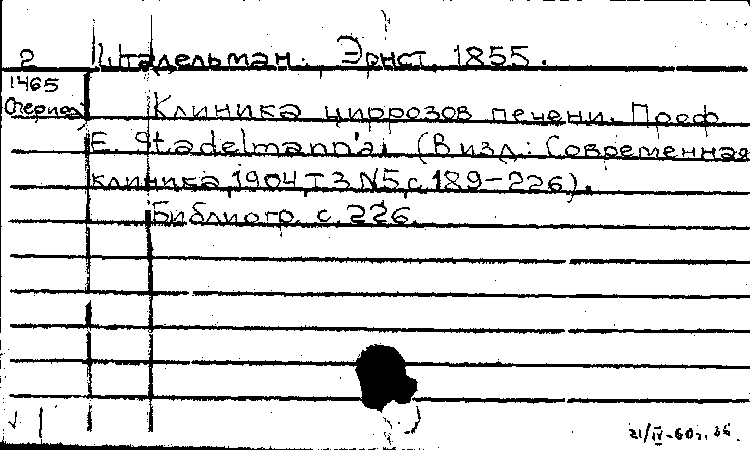 2 Штадельман. Эрнст, 1855.
1465
Опериод
Клиника циррозов печени. Проф.
E. Stadelmann'a (В изд.: Современная
клиника, 1904 т 3 N5, с. 189-226).
Библиогр. с. 226.
21/IV-60г.